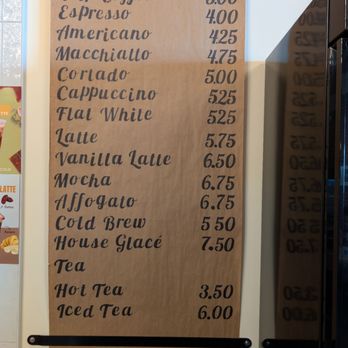 Espresso 4.00
Americano 425
Macchiatto 4.75
Cortado 5.00
Cappuccino 525
Flat White 525
Latte 5.75
Vanilla Latte 6.50
Mocha 6.75
Affogato 6.75
Cold Brew 5 50
House Glacé 7.50
Tea
Hot Tea 3.50
Iced Tea 6.00
LATTE